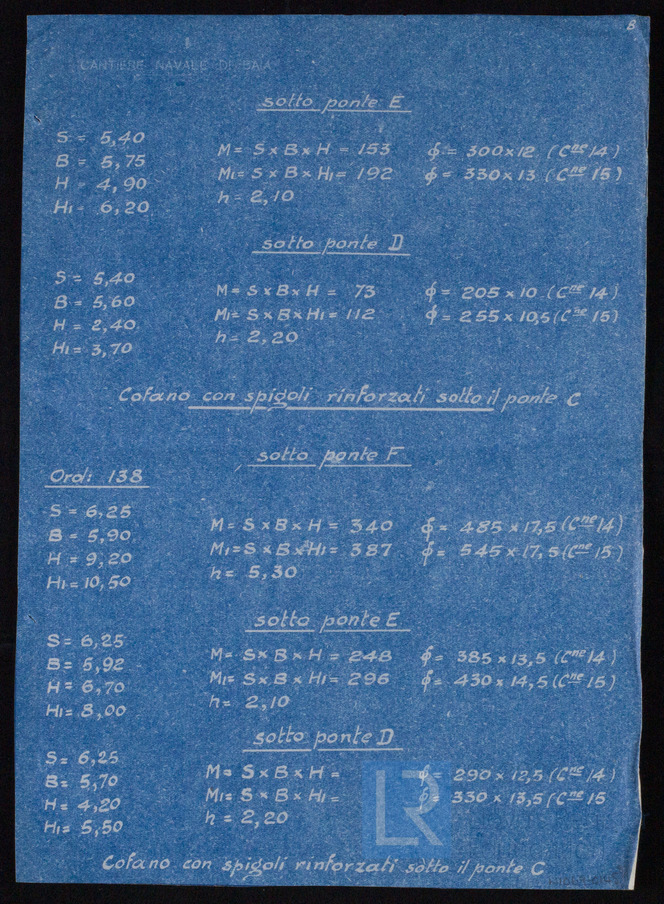 B
CANTIERE NAVALE DI BAIA
sotto ponte E
S = 5,40
B = 5,75
H = 4,90
H1 = 6,20
M = S x B x H = 153
M1 = S x B x H1 = 192
h = 2,10
ϕ = 300x12 (Cne 14)
ϕ = 330x13 (Cne 15)
sotto ponte D
S = 5,40
B = 5,60
H = 2,40
H1 = 3,70
M = S x B x H = 73
M1 = S x B x H1 = 112
h = 2,20
ϕ = 205 x 10 (Cne 14)
ϕ = 255 x 10,5 (Cne 15)
Cofano con spigoli rinforzati sotto il ponte C
sotto ponte F
Ord: 138
S = 6,25
B = 5,90
H = 9,20
H1 = 10,50
M = S x B x H = 340
M1 = S x B x H1 = 387
h = 5,30
ϕ = 485 x 17,5 (Cne 14)
ϕ = 545 x 17,5 (Cne 15)
sotto ponte E
S = 6,25
B = 5,92
H = 6,70
H1 = 8,00
M = S x B x H = 248
M1 = S x B x H1 = 296
h = 2,10
ϕ = 385 x 13,5 (Cne 14)
ϕ = 430 x 14,5 (Cne 15)
sotto ponte D
S = 6,25
B = 5,70
H = 4,20
H1 = 5,50
M = S x B x H =
M1 = S x B x H1 =
h = 2,20
ϕ = 290 x 12,5 (Cne 14)
ϕ = 330 x 13,5 (Cne 15
LR
Cofano con spigoli rinforzati sotto il ponte C